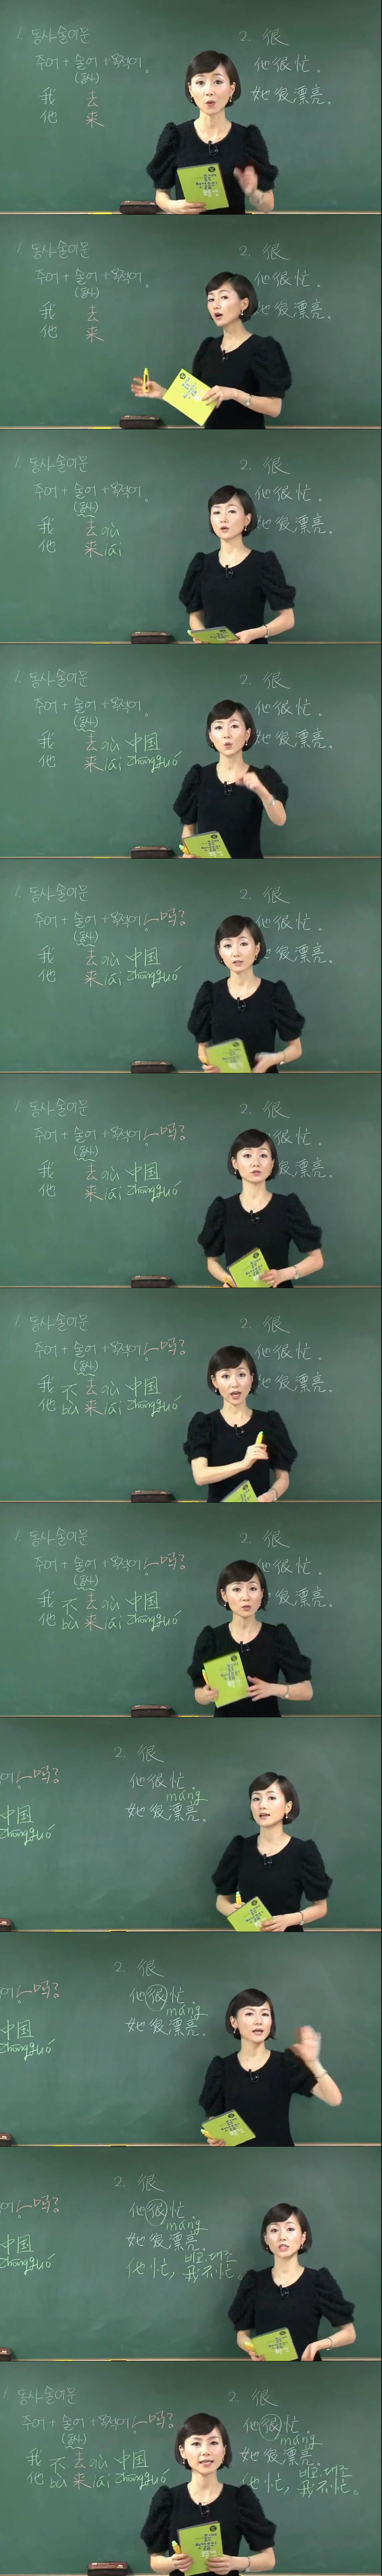 1. 동사술어문
주어 + 술어 + 목적어。
(동사)
我 去
他 来
2. 很
他很忙。
她很漂亮。
1. 동사술어문
주어 + 술어 + 목적어。
(동사)
我 去
他 来
2. 很
他很忙。
很漂亮。
1. 동사술어문
주어 + 술어 + 목적어。
(동사)
我 去 qù
他 来 lái
2. 很
他很忙。
很漂亮。
1. 동사술어문
주어 + 술어 + 목적어。
(동사)
我 去 qù 中国
他 来 lái Zhōngguó
2. 很
他很忙。
她很漂亮。
1. 동사술어문
주어 + 술어 + 목적어。吗?
(동사)
我 去 qù 中国
他 来 lái Zhōngguó
2. 很
他很忙。
很漂亮。
1. 동사술어문
주어 + 술어 + 목적어。吗?
(동사)
我 去 qù 中国
他 来 lái Zhōngguó
2. 很
很忙。
很漂亮。
1. 동사술어문
주어 + 술어 + 목적어。吗?
(동사)
我 不 去 qù 中国
他 bù 来 lái Zhōngguó
2. 很
他很忙。
很漂亮。
1. 동사술어문
주어 + 술어 + 목적어。吗?
(동사)
我 不 去 qù 中国
他 bù 来 lái Zhōngguó
2. 很
他很忙。
很漂亮。
어。吗?
中国
Zhōngguó
2. 很
他很忙。
máng
她很漂亮。
어。吗?
中国
Zhōngguó
2. 很
他很忙。
máng
她很漂亮。
어。吗?
中国
Zhōngguó
2. 很
他很忙。
máng
她很漂亮。
비교. 대조
他忙, 我不忙。
1. 동사술어문
주어 + 술어 + 목적어。吗?
(동사)
我 不 去 qù 中国
他 bù 来 lái Zhōngguó
2. 很
他很忙。
máng
她很漂亮。
비교. 대조
他忙, 我不忙。